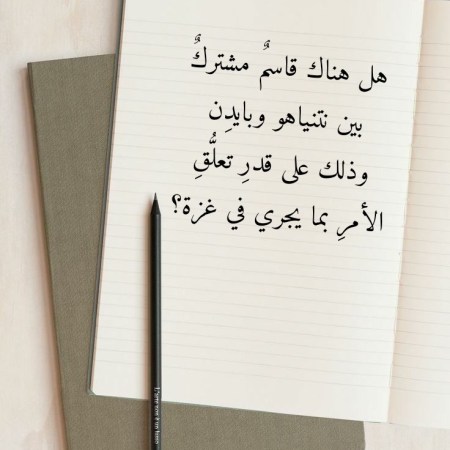 هل هناك قاسمٌ مشتركٌ
بين نتنياهو وبايدِن
وذلك على قدرِ تعلُّقِ
الأمرِ بما يجري في غزة؟